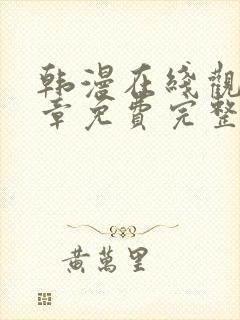 韩漫在綫觀
章免費完整
黃萬里